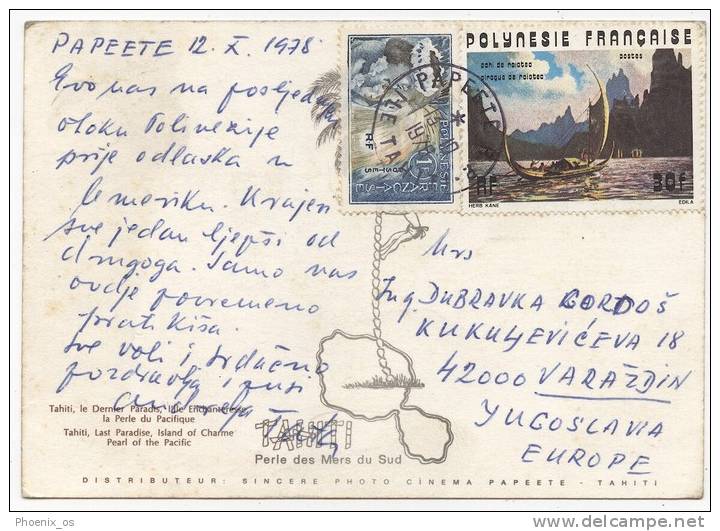 PAPEETE 12. X. 1978
Evo nas na posljednjem
otoku Polinezije
prije odlaska u
Ameriku. Krajevi
sve jedan ljepši od
drugoga. Samo nas
ovdje povremeno
prati kiša.
Sve voli i srdačno
pozdravlja i pusi
POLYNESIE FRANÇAISE
RF
POSTES
POLYNESIE FRANÇAISE
postes
pahi de raiatea
pirogue de raiatea
RF
30f
HERB KANE
EDILA
PAPEETE
Mrs
Ing. DUBRAVKA GORDOŠ
KUKULJEVIĆEVA 18
42000 VARAŽDIN
YUGOSLAVIA
EUROPE
Tahiti, le Dernier Paradis, l'Ile Enchanteresse
la Perle du Pacifique
Tahiti, Last Paradise, Island of Charme
Pearl of the Pacific
TAHITI
Perle des Mers du Sud
DISTRIBUTEUR: SINCERE PHOTO CINEMA PAPEETE - TAHITI
Phoenix_os
delcampe.net